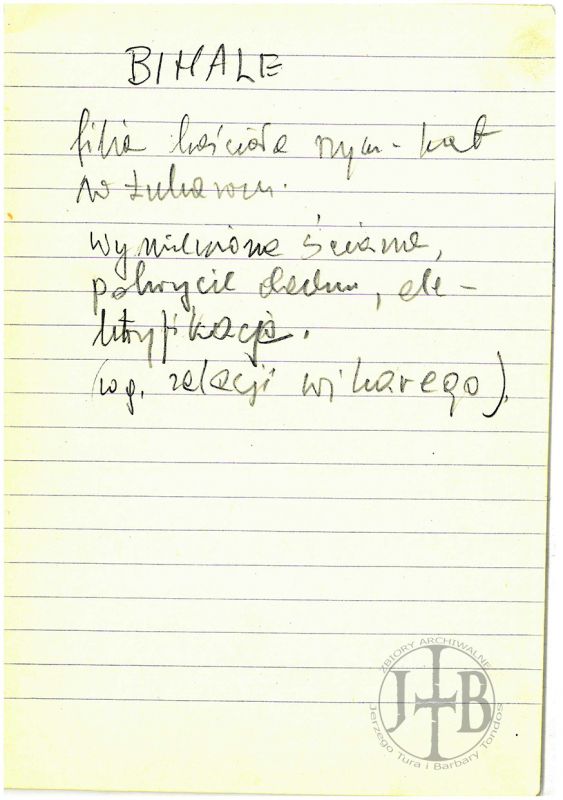 BIHALE
filia kościoła rzym-kat
w Łukawcu.
wymieniona ściana,
pokrycie dachu, ele-
ktryfikacja.
(wg. relacji wikarego).
ZBIORY ARCHIWALNE
JTB
Jerzego Tura i Barbary Tondos